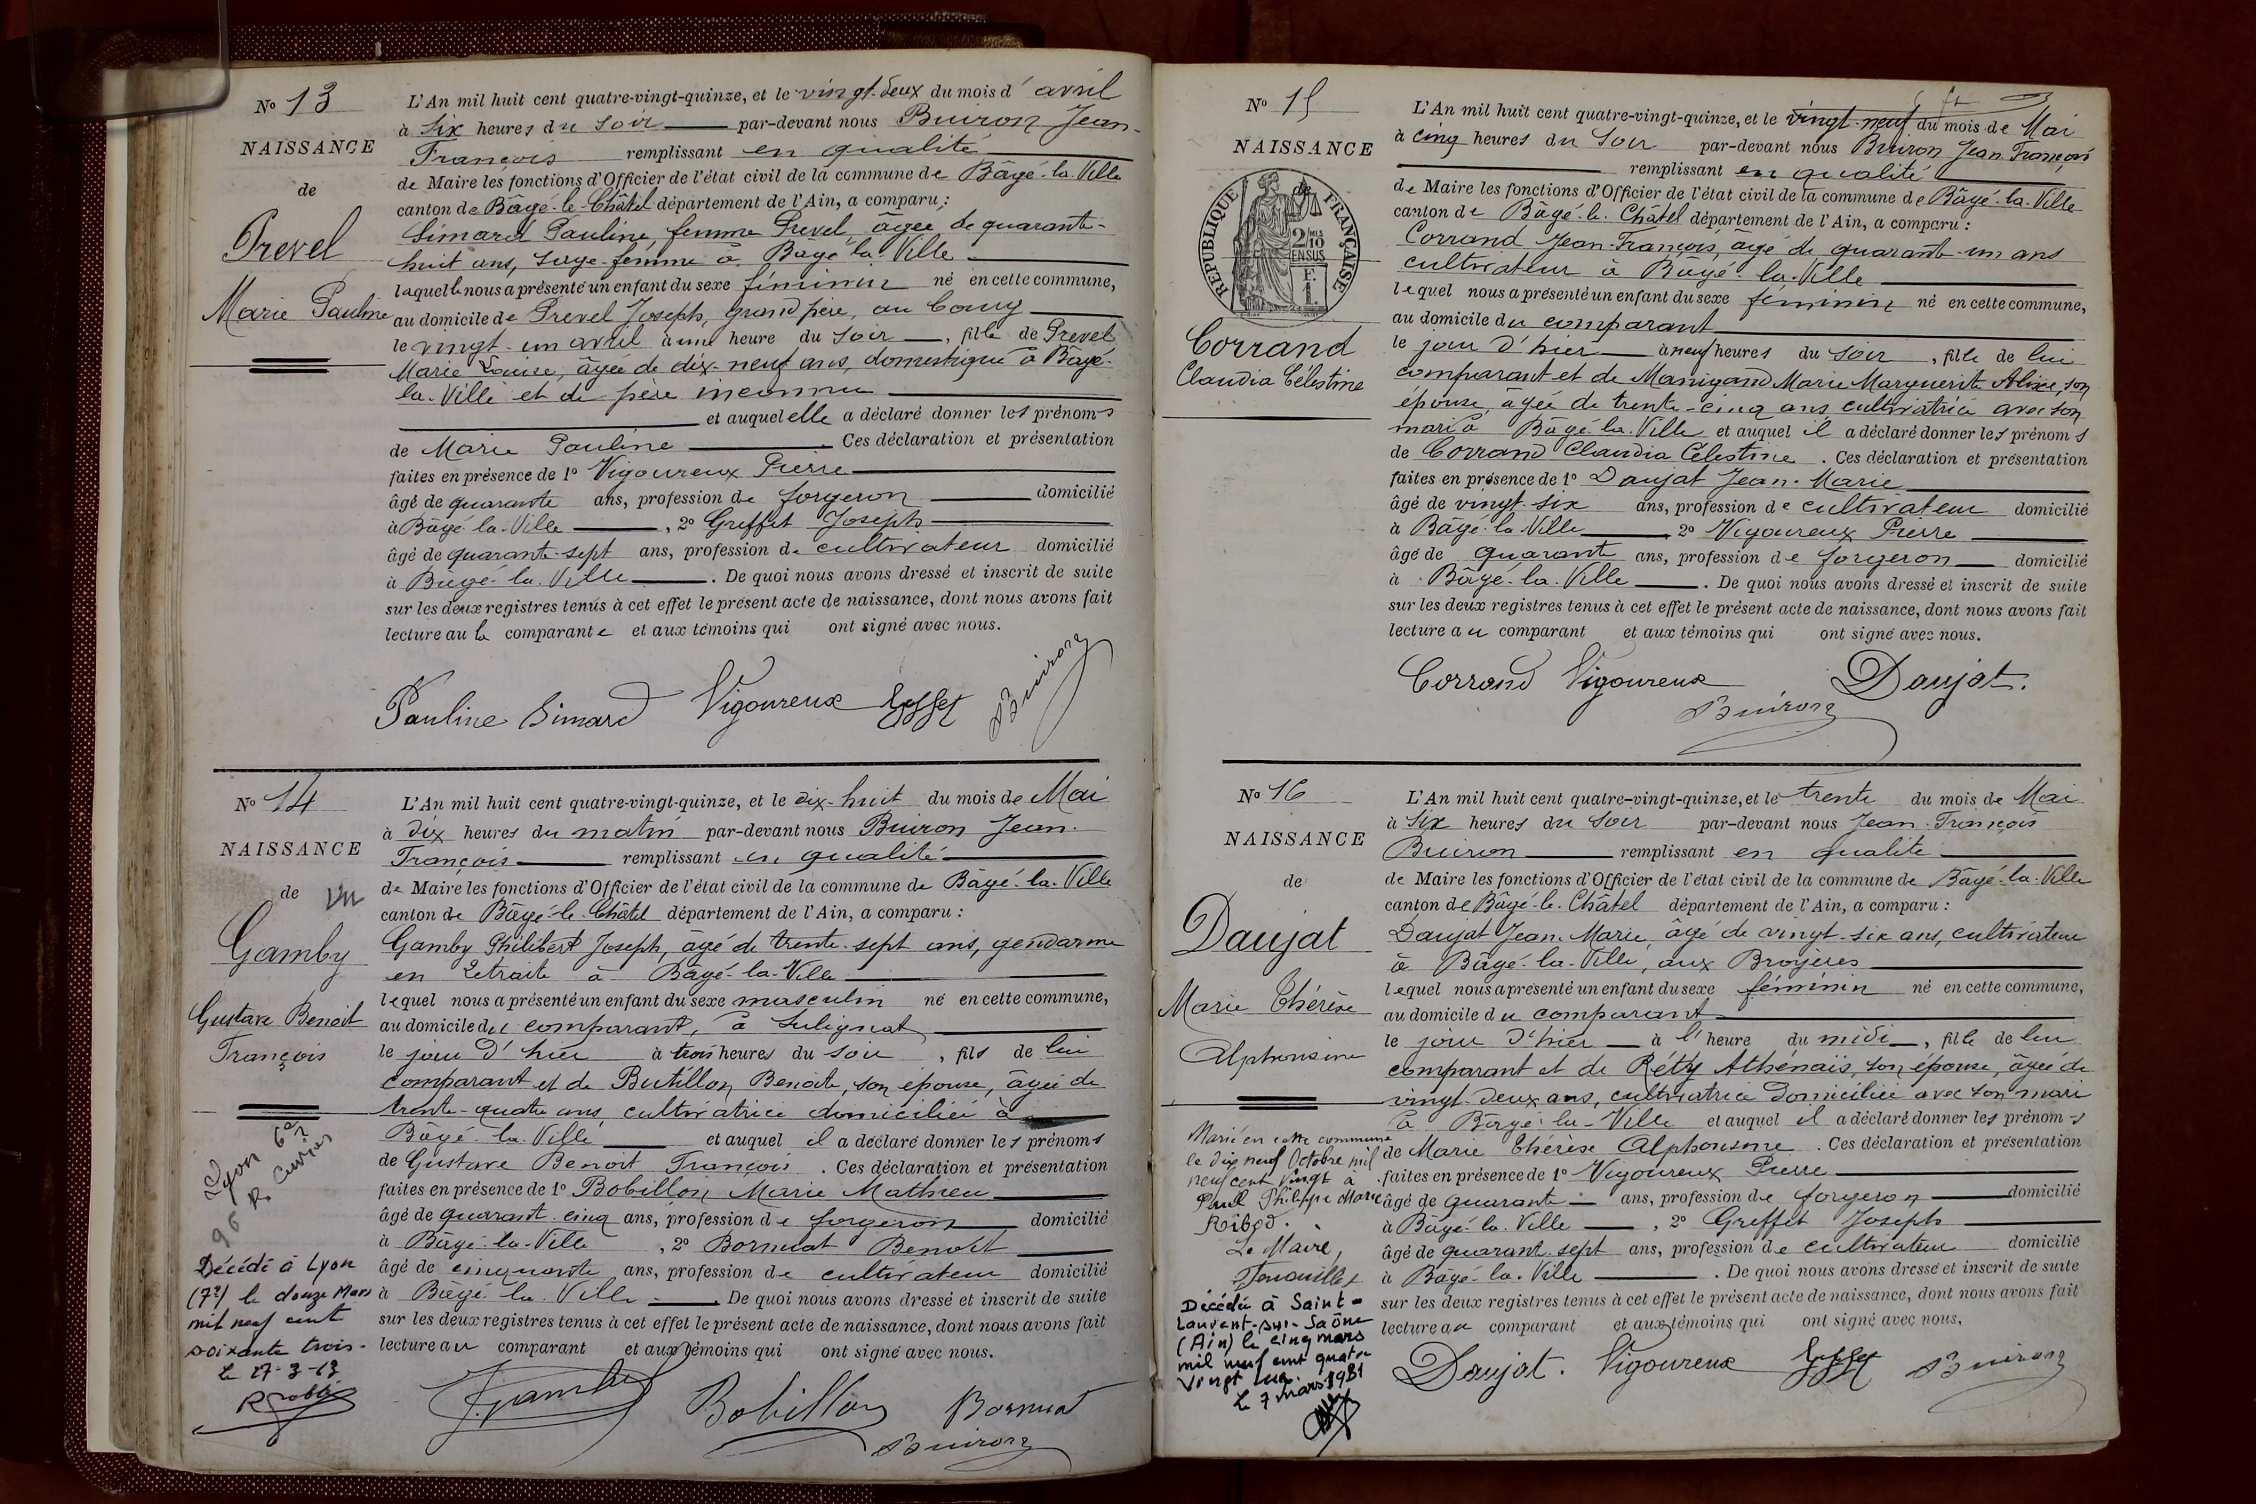 No 13
NAISSANCE
de
Prevel
Marie Pauline
L'An mil huit cent quatre-vingt-quinze, et le vingt-deux du mois d'avril
à six heures du soir par-devant nous Buiron Jean-
François remplissant en qualité
de Maire les fonctions d'Officier de l'état civil de la commune de Bâgé-la-Ville
canton de Bâgé-le-Châtel département de l'Ain, a comparu :
Simard Pauline, femme Prevel, âgée de quarante-
huit ans, sage-femme à Bâgé-la-Ville
laquelle nous a présenté un enfant du sexe féminin né en cette commune,
au domicile de Prevel Joseph, grand père, au
le vingt-un avril à une heure du soir, fille de Prevel
Marie Louise, âgée de dix-neuf ans, domestique à Bâgé-
la-Ville et de père inconnu
et auquel elle a déclaré donner les prénoms
de Marie Pauline Ces déclaration et présentation
faites en présence de 1o Vigoureux Pierre
âgé de quarante ans, profession de forgeron domicilié
à Bâgé-la-Ville, 2o Greffet Joseph
âgé de quarante-sept ans, profession de cultivateur domicilié
à Bâgé-la-Ville. De quoi nous avons dressé et inscrit de suite
sur les deux registres tenus à cet effet le présent acte de naissance, dont nous avons fait
lecture au la comparante et aux témoins qui ont signé avec nous.
Pauline Simard Vigoureux Greffet Buiron
No 14
NAISSANCE
de
Gamby
Gustave Benoit
François
Lyon 6e
96 R. Cuvier
Décédé à Lyon
(7e) le douze Mars
mil neuf cent
soixante trois.
Le 17-3-63
L'An mil huit cent quatre-vingt-quinze, et le dix-huit du mois de Mai
à dix heures du matin par-devant nous Buiron Jean-
François remplissant en qualité
de Maire les fonctions d'Officier de l'état civil de la commune de Bâgé-la-Ville
canton de Bâgé-le-Châtel département de l'Ain, a comparu :
Gamby Philibert Joseph, âgé de trente-sept ans, gendarme
en retraite à Bâgé-la-Ville
lequel nous a présenté un enfant du sexe masculin né en cette commune,
au domicile du comparant, à Sulignat
le jour d'hier à trois heures du soir, fils de lui
comparant et de Butillon Benoite, son épouse, âgée de
trente-quatre ans, cultivatrice domiciliée à
Bâgé-la-Ville et auquel il a déclaré donner les prénoms
de Gustave Benoit François. Ces déclaration et présentation
faites en présence de 1o Bobillon Marie Mathieu
âgé de quarant-cinq ans, profession de forgeron domicilié
à Bâgé-la-Ville, 2o Bornuat Benoit
âgé de cinquante ans, profession de cultivateur domicilié
à Bâgé-la-Ville. De quoi nous avons dressé et inscrit de suite
sur les deux registres tenus à cet effet le présent acte de naissance, dont nous avons fait
lecture au comparant et aux témoins qui ont signé avec nous.
Gamby Bobillon Bornuat
Buiron
No 15
NAISSANCE
de
REPUBLIQUE FRANÇAISE
2/10 EN SUS
Corrand
Claudia Célestine
L'An mil huit cent quatre-vingt-quinze, et le vingt-neuf du mois de Mai
à cinq heures du soir par-devant nous Buiron Jean François
remplissant en qualité
de Maire les fonctions d'Officier de l'état civil de la commune de Bâgé-la-Ville
canton de Bâgé-le-Châtel département de l'Ain, a comparu :
Corrand Jean-François, âgé de quarante-un ans
cultivateur à Bâgé-la-Ville
lequel nous a présenté un enfant du sexe féminin né en cette commune,
au domicile du comparant
le jour d'hier à neuf heures du soir, fille de lui
comparant et de Manigand Marie Marguerite Alixe, son
épouse, âgée de trente-cinq ans cultivatrice avec son
mari à Bâgé-la-Ville et auquel il a déclaré donner les prénoms
de Corrand Claudia Célestine. Ces déclaration et présentation
faites en présence de 1o Daujat Jean-Marie
âgé de vingt-six ans, profession de cultivateur domicilié
à Bâgé-la-Ville 2o Vigoureux Pierre
âgé de quarante ans, profession de forgeron domicilié
à Bâgé-la-Ville. De quoi nous avons dressé et inscrit de suite
sur les deux registres tenus à cet effet le présent acte de naissance, dont nous avons fait
lecture au comparant et aux témoins qui ont signé avec nous.
Corrand Vigoureux Daujat.
Buiron
No 16
NAISSANCE
de
Daujat
Marie Thérèse
Alphonsine
Marié en cette commune
le dix neuf Octobre mil
neuf cent vingt à
Paul Philippe Marie
Ribod.
Le Maire,
Décédée à Saint-
Laurent-sur-Saône
(Ain) le cinq mars
mil neuf cent quatre
vingt un.
Le 7 mars 1981
L'An mil huit cent quatre-vingt-quinze, et le trente du mois de Mai
à six heures du soir par-devant nous Jean-François
Buiron remplissant en qualité
de Maire les fonctions d'Officier de l'état civil de la commune de Bâgé-la-Ville
canton de Bâgé-le-Châtel département de l'Ain, a comparu :
Daujat Jean-Marie, âgé de vingt-six ans, cultivateur
à Bâgé-la-Ville, aux Broyères
lequel nous a présenté un enfant du sexe féminin né en cette commune,
au domicile du comparant
le jour d'hier à l'heure du midi, fille de lui
comparant et de Réty Athénaïs, son épouse, âgée de
vingt-deux ans, cultivatrice domiciliée avec son mari
à Bâgé-la-Ville et auquel il a déclaré donner les prénoms
de Marie Thérèse Alphonsine. Ces déclaration et présentation
faites en présence de 1o Vigoureux Pierre
âgé de quarante ans, profession de forgeron domicilié
à Bâgé-la-Ville, 2o Greffet Joseph
âgé de quarant-sept ans, profession de cultivateur domicilié
à Bâgé-la-Ville. De quoi nous avons dressé et inscrit de suite
sur les deux registres tenus à cet effet le présent acte de naissance, dont nous avons fait
lecture au comparant et aux témoins qui ont signé avec nous.
Daujat. Vigoureux Greffet Buiron